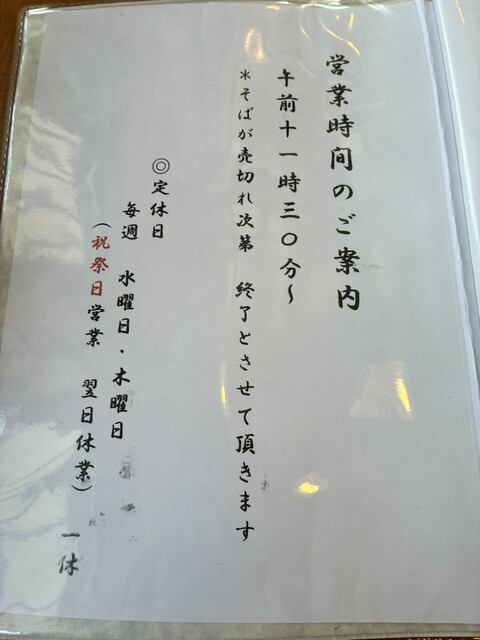 営業時間のご案内
午前十一時三〇分~
*そばが売切れ次第 終了とさせて頂きます
◎定休日
毎週 水曜日・木曜日
(祝祭日営業 翌日休業)
一休